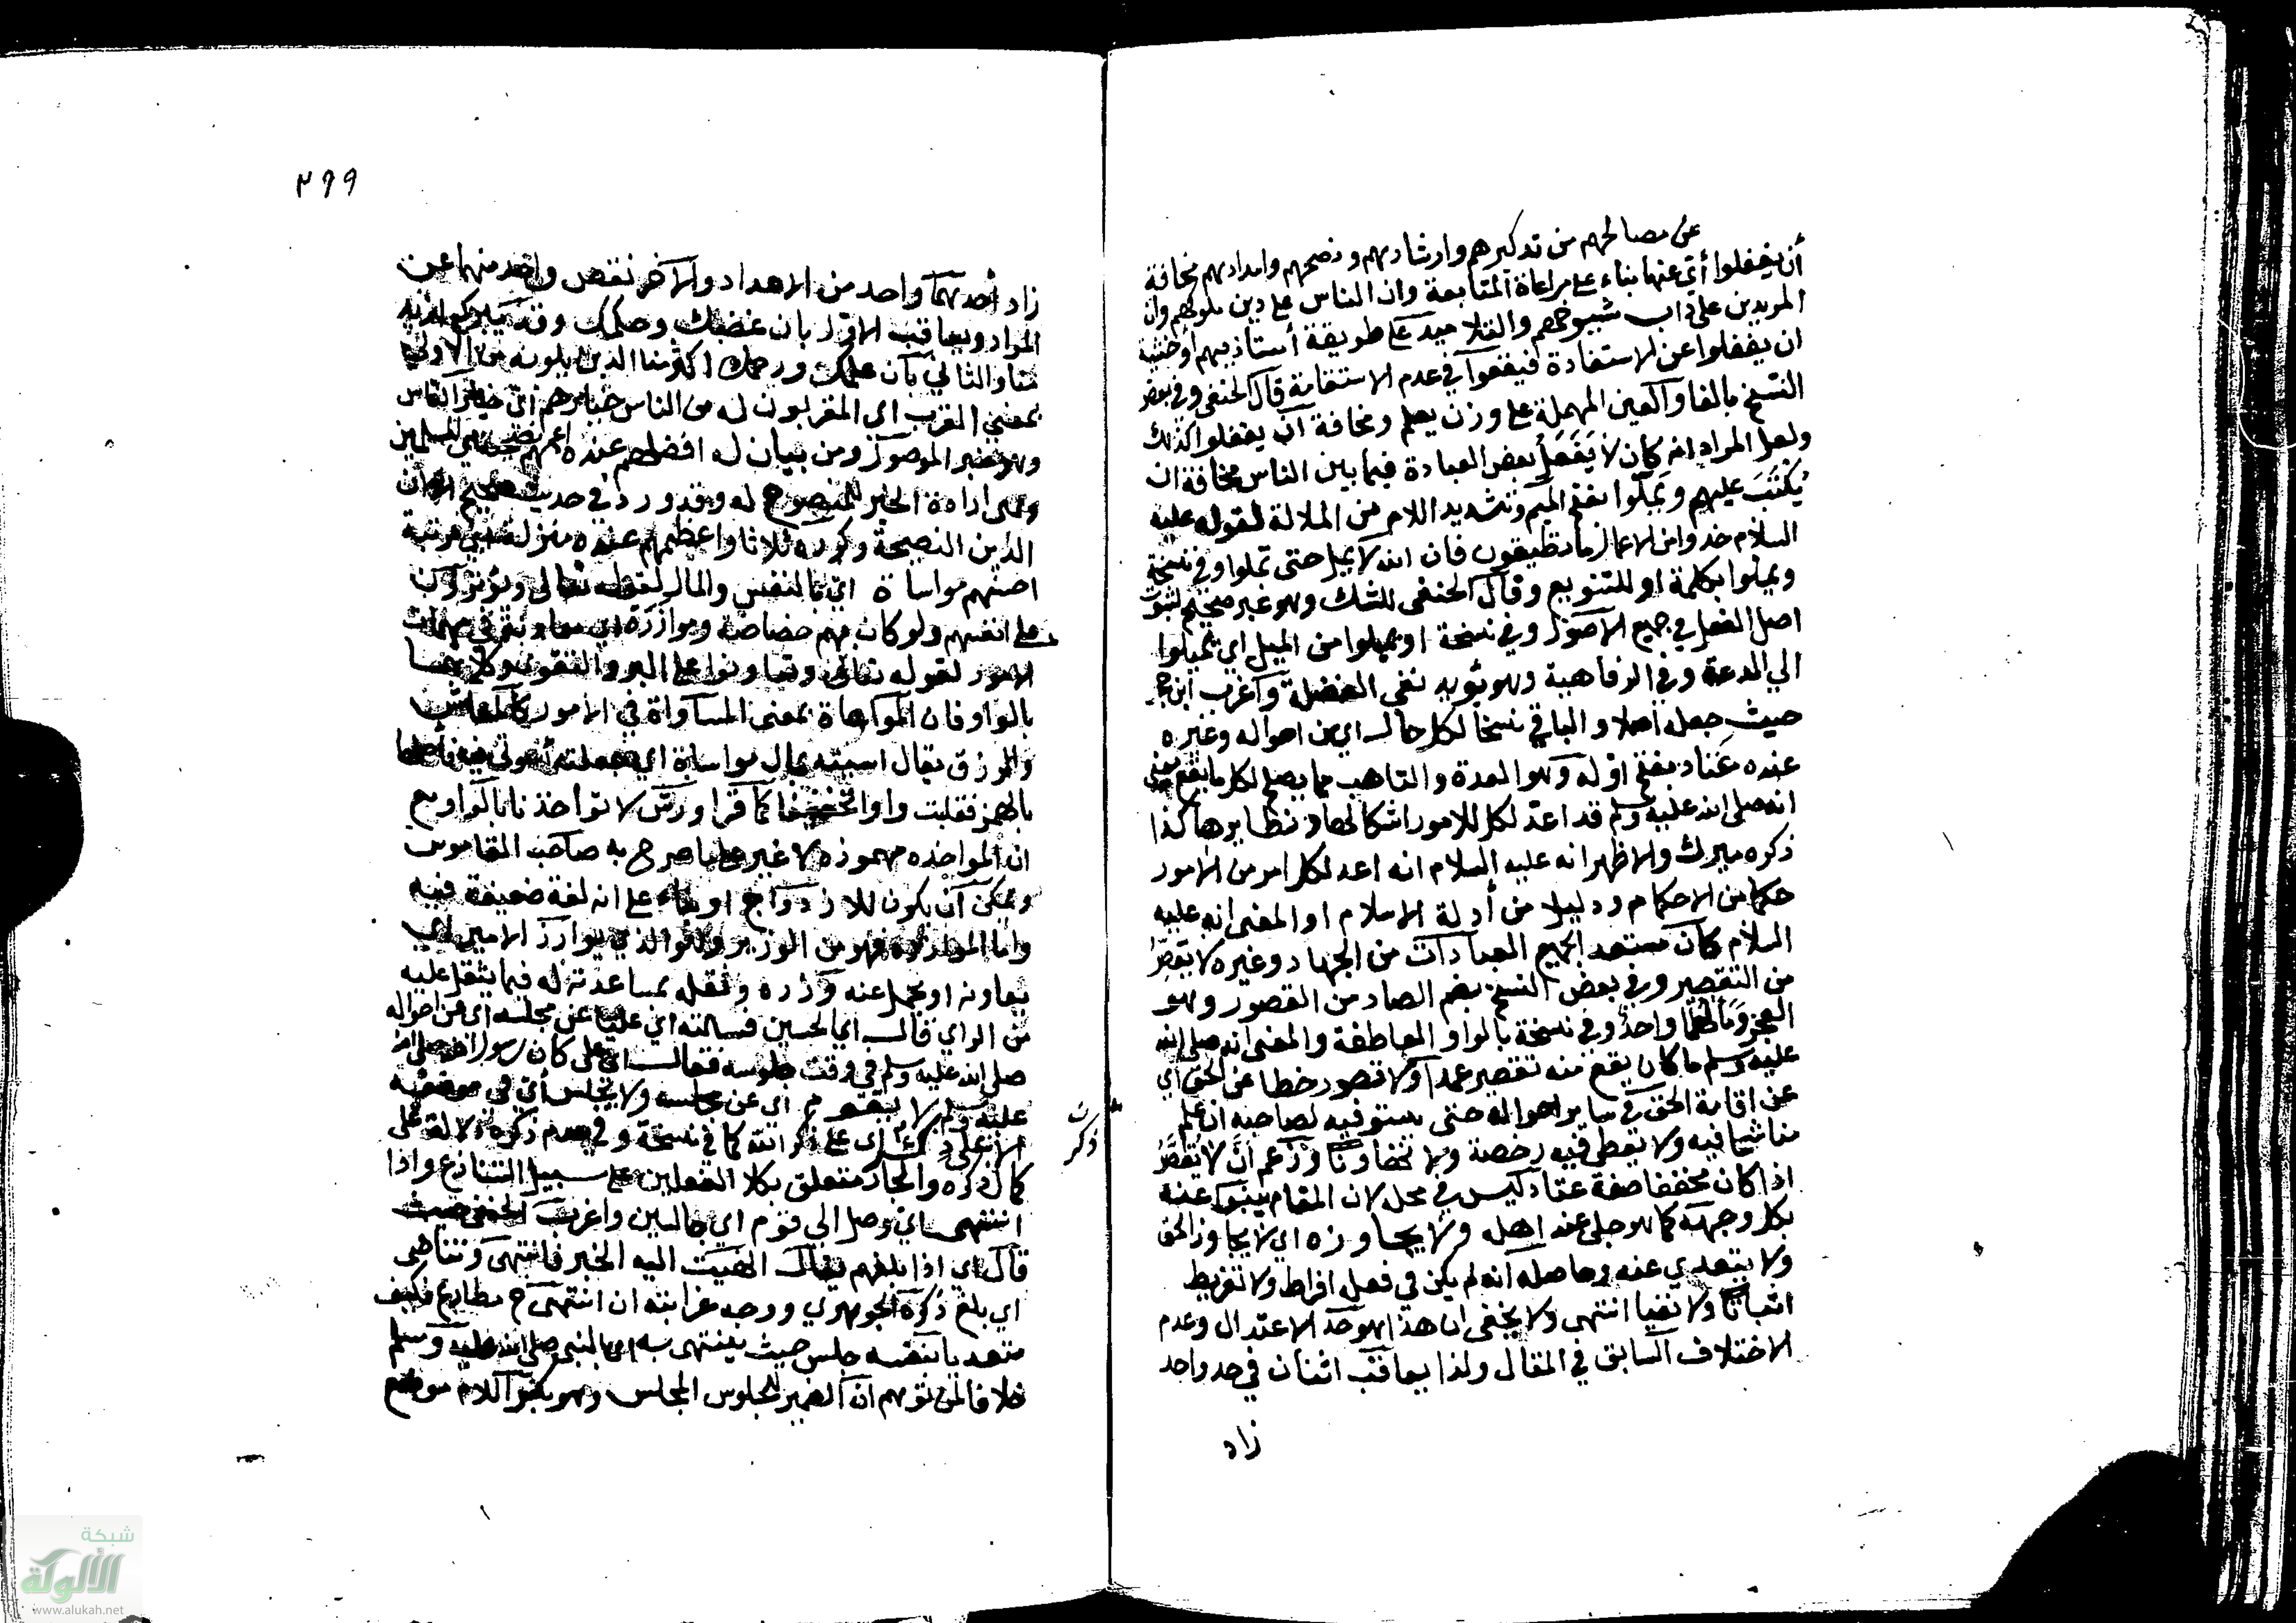 عن مصالحهم من تذكيرهم وارشادهم ونصحهم وامدادهم مخافة
أن يغفلوا أي عنها بناء على مراعاة المتابعة وان الناس على دين ملوكهم وان
المريدين على داب شيوخهم والتلاميذ على طريقة أستاذيهم أو خشية
ان يغفلوا عن الاستفادة فيقعوا في عدم الاستقامة قال الحنفي وفي بعض
النسخ بالفا والعين المهملة على وزن يعلم ومخافة أن يفعلوا كذلك
ولعل المراد انه كان لا يفعل بعض العبادة فيما بين الناس مخافة ان
يكتب عليهم ويملوا بفتح الميم وتشديد اللام من الملالة لقوله عليه
السلام خذوا من الاعمال ما تطيقون فان الله لا يمل حتى تملوا وفي نسخة
ويميلوا بكلمة او للتنويع وقال الحنفي للشك وهو غير صحيح لثبوت
اصل الفعل في جميع الاصول وفي نسخة او يميلوا من الميل اي يميلوا
الي الدعة والرفاهية وهو يؤيد نفي الغفلة وأغرب ابن حجر
حيث جعله أصلا والباقي نسخا لكل حال اي من احواله وغيره
عنده عتاد بفتح اوله وهو العدة والتاهب مما يصلح لكل ما يقع يعني
انه صلى الله عليه وسلم قد اعد لكل للامور اشكالها ونظايرها كذا
ذكره ميرك والاظهر انه عليه السلام انه اعد لكل امر من الامور
حكما من الاحكام ودليلا من أدلة الاسلام او المعنى انه عليه
السلام كان مستعد الجميع العبادات من الجهاد وغيره لا يقصر
من التقصير وفي بعض النسخ بضم الصاد من القصور وهو
العجز ومآلهما واحد وفي نسخة بالواو العاطفة والمعنى انه صلى الله
عليه وسلم ما كان يقع منه تقصير عمدا ولا قصور خطا عن الحق اي
عن اقامة الحق في ساير احواله حتى يستوفيه لصاحبه ان علم
منا شحا فيه ولا يعطي فيه رخصة ولا تهاونا وزعم أن لا يقصر
اذا كان مخففا صفة عتاد ليس في محله لان المقام ينبو عنه
بكل وجهة كما هو جلي عند اهله ولا يجاوزه اي لا يجاوز الحق
ولا يتعدي عنه وحاصله أنه لم يكن في فعله افراط ولا تفريط
اثباتا ولا نفيا انتهى ولا يخفى ان هذا هو حد الاعتدال وعدم
الاختلاف السابق في المقال ولذا يعاقب اثنان في حد واحد
زاد
٢٩٩
زاد أحدهما واحد من الاعداد والآخر نقص واحد منهما عن
المراد ويعاقب الاول بان غضبك وحكمك وقد
منا والثاني بان علمك ورحمتك اكثر منا الذين يلونه من الولي
بمعنى القرب اي المقربون له من الناس خيارهم اي خيار الناس
وهو خبر الموصول ومن بيان له افضلهم عنده اعمهم نصيحة اي للمسلمين
وهي ارادة الخير للمنصوح له وقد ورد في حديث صحيح الا ان
الدين النصيحة وكرره ثلاثا واعظمهم عنده منزلة اي مرتبة
احسنهم مواساة اي بالنفس والمال لقوله تعالى ويؤثرون
على انفسهم ولو كان بهم خصاصة وموازرة اي معاونة في مهمات
الامور لقوله تعالى وتعاونوا على البر والتقوى وكلاهما
بالواو فان المواساة بمعنى المساواة في الامور كالمعاش
والرزق يقال اسيته بمال مواساة اي جعلته أسوتي فيه فأصلها
بالهمز فقلبت واوا تخفيفا كما قرا ورش لا تواخذنا بالواو مع
ان المواخذه مهموزه لا غير على ما صرح به صاحب القاموس
ويمكن أن يكون للازدواج او بناء على انه لغة ضعيفة فيه
واما الموازرة فهو من الوزير وهو الذي يوازر الامير اي
يعاونه او يحمل عنه وزره وثقله بمساعدته له فيما يثقل عليه
من الراي قال اي الحسين فسالته اي عليا عن مجلسه اي عن احواله
صلى الله عليه وسلم في وقت جلوسه فقال اي علي كان رسول الله صلى الله
عليه وسلم لا يقوم اي عن مجلسه ولا يجلس أي في موضعه
الا على ذكر اي على ذكر الله كما في نسخة وفي عدم ذكره دلالة على
كمال ذكره والجار متعلق بكلا الفعلين على سبيل التنازع واذا
انتهى اي وصل الي قوم اي جالسين واغرب الحنفي حيث
قال اي اذا بلغهم يقال انهيت اليه الخبر فانتهى وتناهى
اي بلغ ذكره الجوهري ووجه غرابته ان انتهى ح مطاوع فكيف
متعديا بنفسه جلس حيث ينتهى به اي بالنبي صلى الله عليه وسلم
خلافا لمن توهم ان الضمير للجلوس المجلس وهو بكسر اللام موضع
ذكرت
شبكة
الألوكة
www.alukah.net